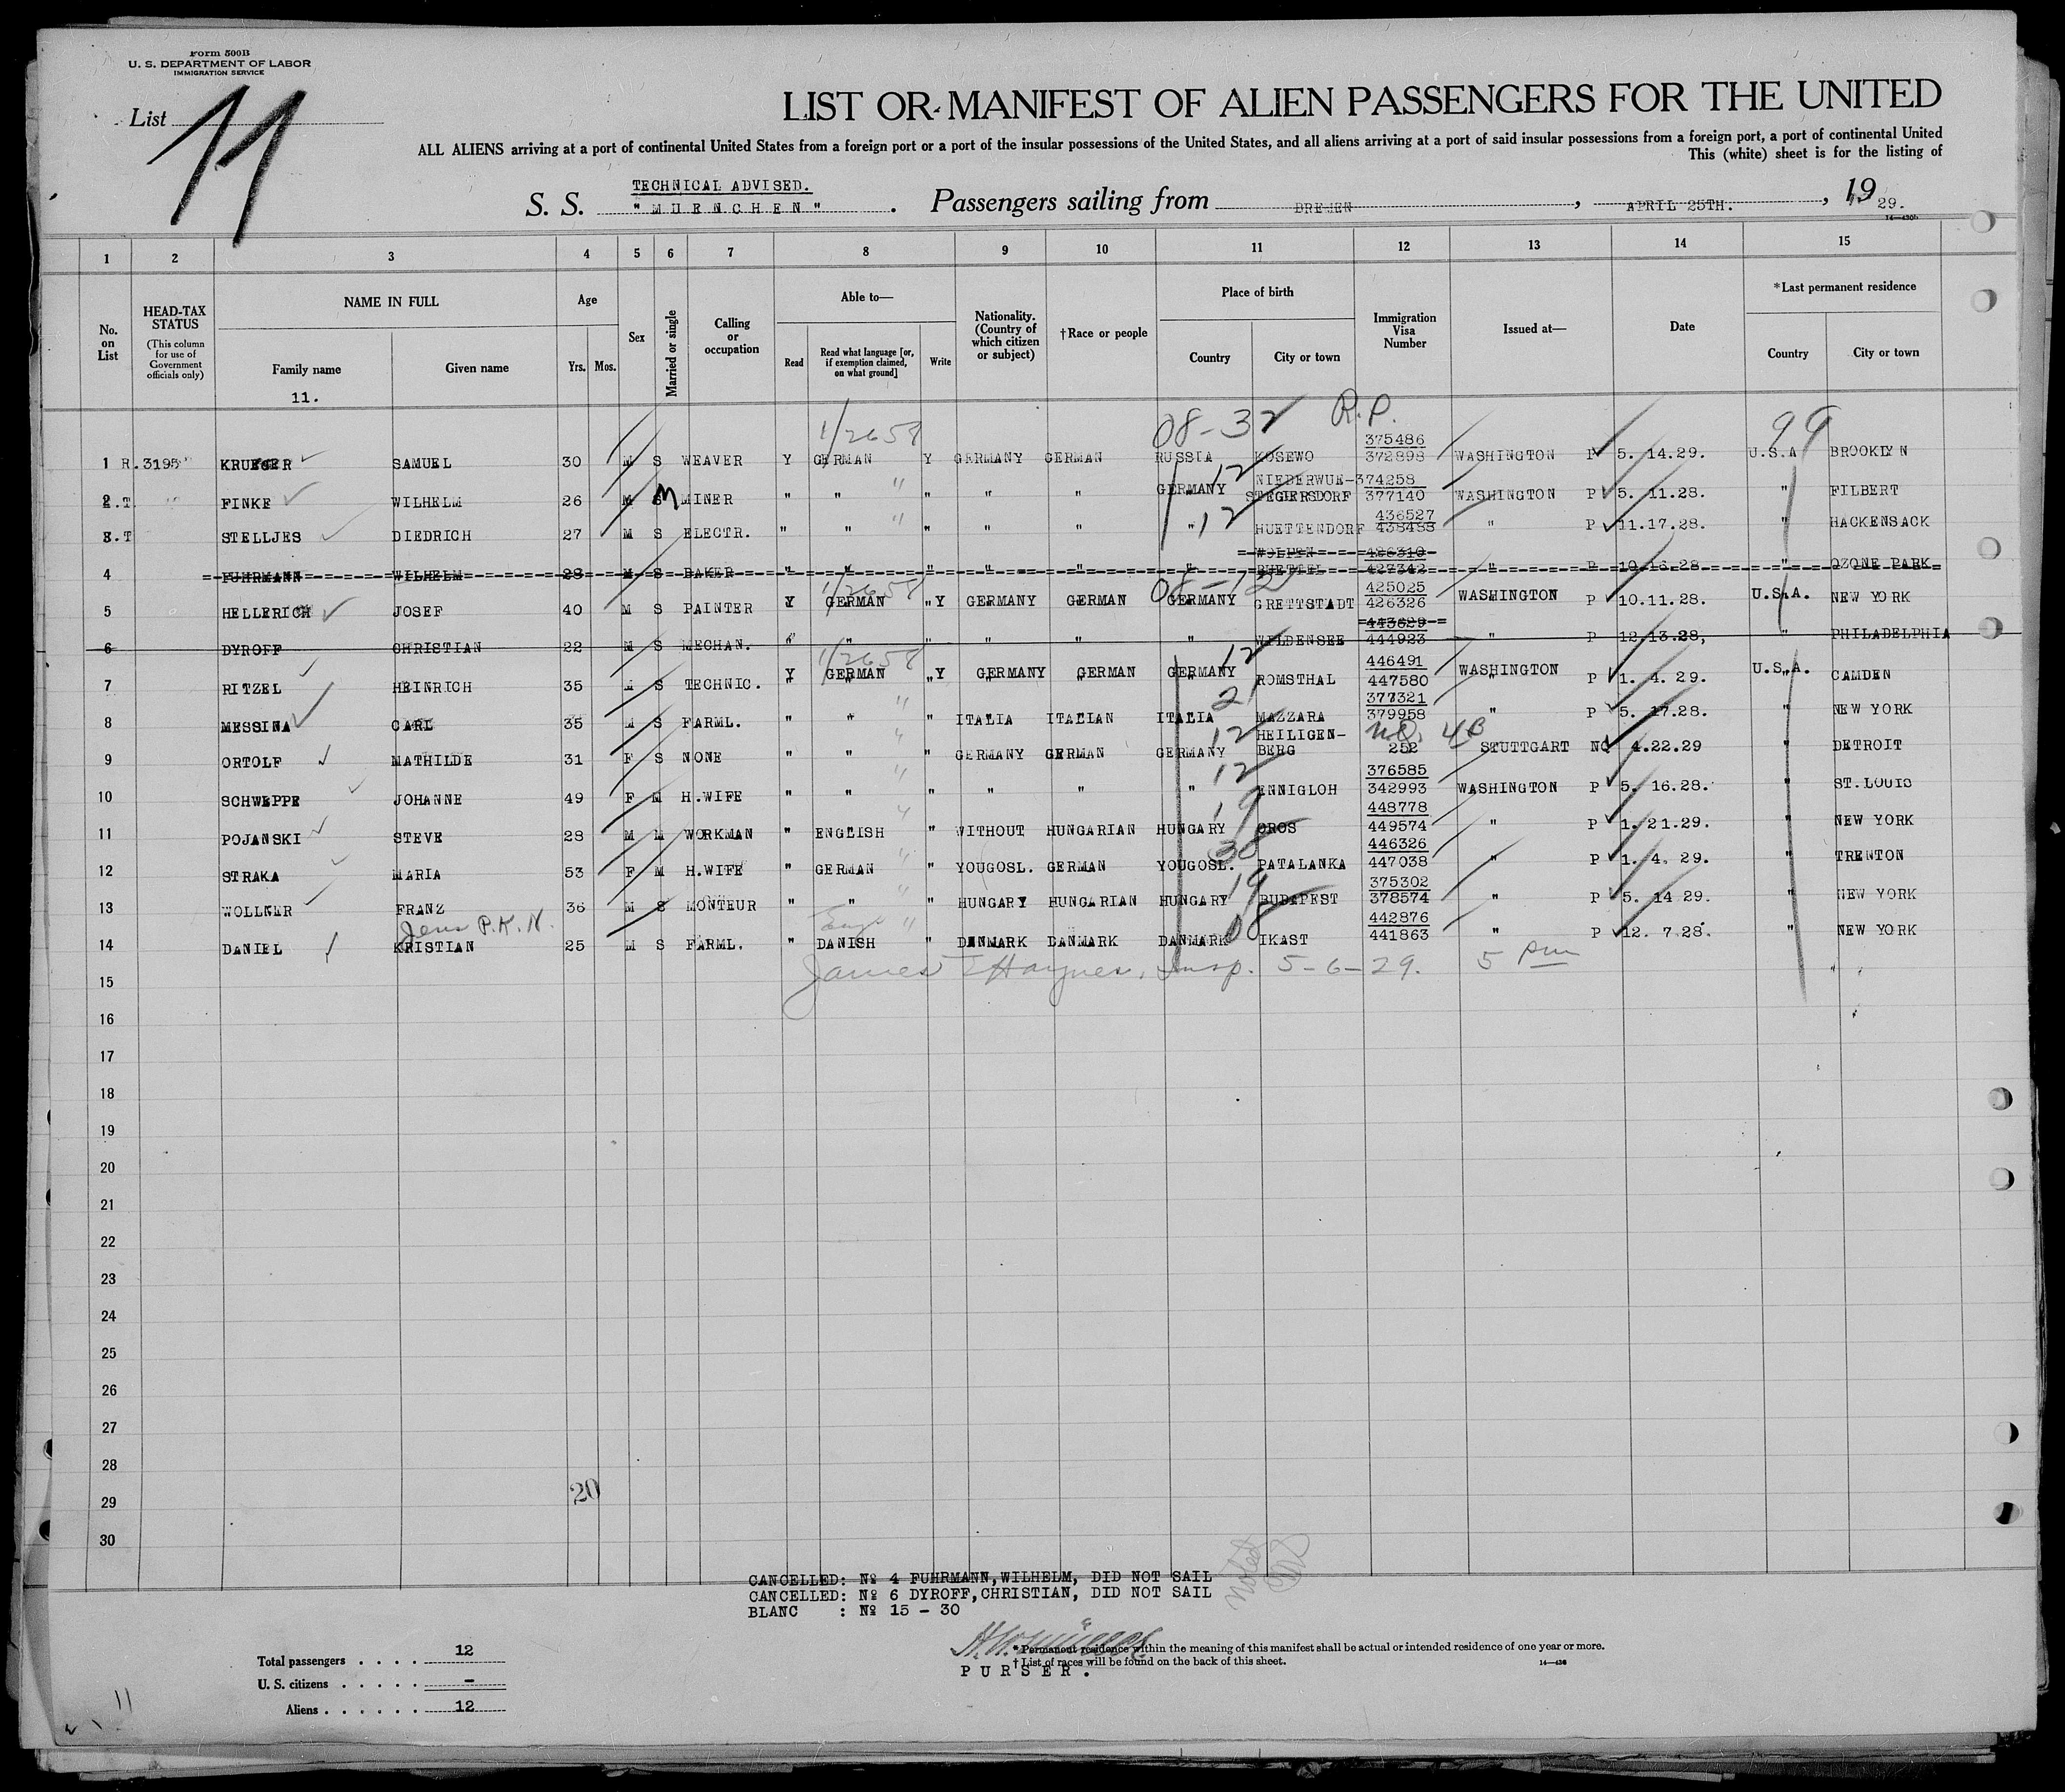 Form 500B
U. S. DEPARTMENT OF LABOR
IMMIGRATION SERVICE
List 11
LIST OR MANIFEST OF ALIEN PASSENGERS FOR THE UNITED
ALL ALIENS arriving at a port of continental United States from a foreign port or a port of the insular possessions of the United States, and all aliens arriving at a port of said insular possessions from a foreign port, a port of continental United
This (white) sheet is for the listing of
TECHNICAL ADVISED.
S. S. "MUENCHEN". Passengers sailing from BREMEN, APRIL 25TH., 1929.
14—430b
1 2 3 4 5 6 7 8 9 10 11 12 13 14 15
No. on List
HEAD-TAX STATUS
(This column for use of Government officials only)
NAME IN FULL
Family name
Given name
Age
Yrs. Mos.
Sex
Married or single
Calling or occupation
Able to—
Read
Read what language [or, if exemption claimed, on what ground]
Write
Nationality. (Country of which citizen or subject)
†Race or people
Place of birth
Country
City or town
Immigration Visa Number
Issued at—
Date
*Last permanent residence
Country
City or town
11.
1/2658 08-32 R.P. 99
375486
1 R.3195 KRUEGER SAMUEL 30 M S WEAVER Y GERMAN Y GERMANY GERMAN RUSSIA KOSEWO 372898 WASHINGTON P 5. 14.29. U.S.A BROOKLYN
12 NIEDERWUE-374258
2.T FINKE WILHELM 26 M M MINER " " " " " GERMANY STEGERSDORF 377140 WASHINGTON P 5. 11.28. " FILBERT
12 436527
3.T STELLJES DIEDRICH 27 M S ELECTR. " " " " " " HUETTENDORF 438488 " P 11.17.28. " HACKENSACK
426310
4 FUHRMANN WILHELM 28 M S BAKER " " " " " " BUETTEL 427342 " P 10.16.28 OZONE PARK
1/2658 08-12 425025
5 HELLERICH JOSEF 40 M S PAINTER Y GERMAN "Y GERMANY GERMAN GERMANY GRETTSTADT 426326 WASHINGTON P 10.11.28. U.S.A. NEW YORK
443629
6 DYROFF CHRISTIAN 22 M S MECHAN. " " " " " " WILDENSEE 444923 " P 12.13.28, " PHILADELPHIA
1/2658 12 446491
7 RITZEL HEINRICH 35 M S TECHNIC. Y GERMAN "Y GERMANY GERMAN GERMANY ROMSTHAL 447580 WASHINGTON P 1. 4. 29. U.S.A. CAMDEN
21 377321
8 MESSINA CARL 35 M S FARML. " " " ITALIA ITALIAN ITALIA MAZZARA 379958 " P 5. 17.28. " NEW YORK
12 HEILIGEN- N.Q. 4B
9 ORTOLF MATHILDE 31 F S NONE " " " GERMANY GERMAN GERMANY BERG 252 STUTTGART NQ 4.22.29 " DETROIT
12 376585
10 SCHWEPPE JOHANNE 49 F M H.WIFE " " " " " " ENNIGLOH 342993 WASHINGTON P 5. 16.28. " ST.LOUIS
19 448778
11 POJANSKI STEVE 28 M M WORKMAN " ENGLISH " WITHOUT HUNGARIAN HUNGARY OROS 449574 " P 1. 21.29. " NEW YORK
30 446326
12 STRAKA MARIA 53 F M H.WIFE " GERMAN " YOUGOSL. GERMAN YOUGOSL. PATALANKA 447038 " P 1. 4. 29. " TRENTON
19 375302
13 WOLLNER FRANZ 36 M S MONTEUR " " " HUNGARY HUNGARIAN HUNGARY BUDAPEST 378574 " P 5. 14 29. " NEW YORK
Jens P.K.N. Eng. 08 442876
14 DANIEL KRISTIAN 25 M S FARML. " DANISH " DANMARK DANMARK DANMARK IKAST 441863 " P 12. 7.28. " NEW YORK
James Haynes, Insp. 5-6-29. 5 pm
15
16
17
18
19
20
21
22
23
24
25
26
27
28
20
29
30
CANCELLED: Nº 4 FUHRMANN,WILHELM, DID NOT SAIL
CANCELLED: Nº 6 DYROFF,CHRISTIAN, DID NOT SAIL
BLANC : Nº 15 - 30
noted
Total passengers . . . . 12
U. S. citizens . . . . . -
Aliens . . . . . . 12
* Permanent residence within the meaning of this manifest shall be actual or intended residence of one year or more.
† List of races will be found on the back of this sheet.
14—430
PURSER.
11